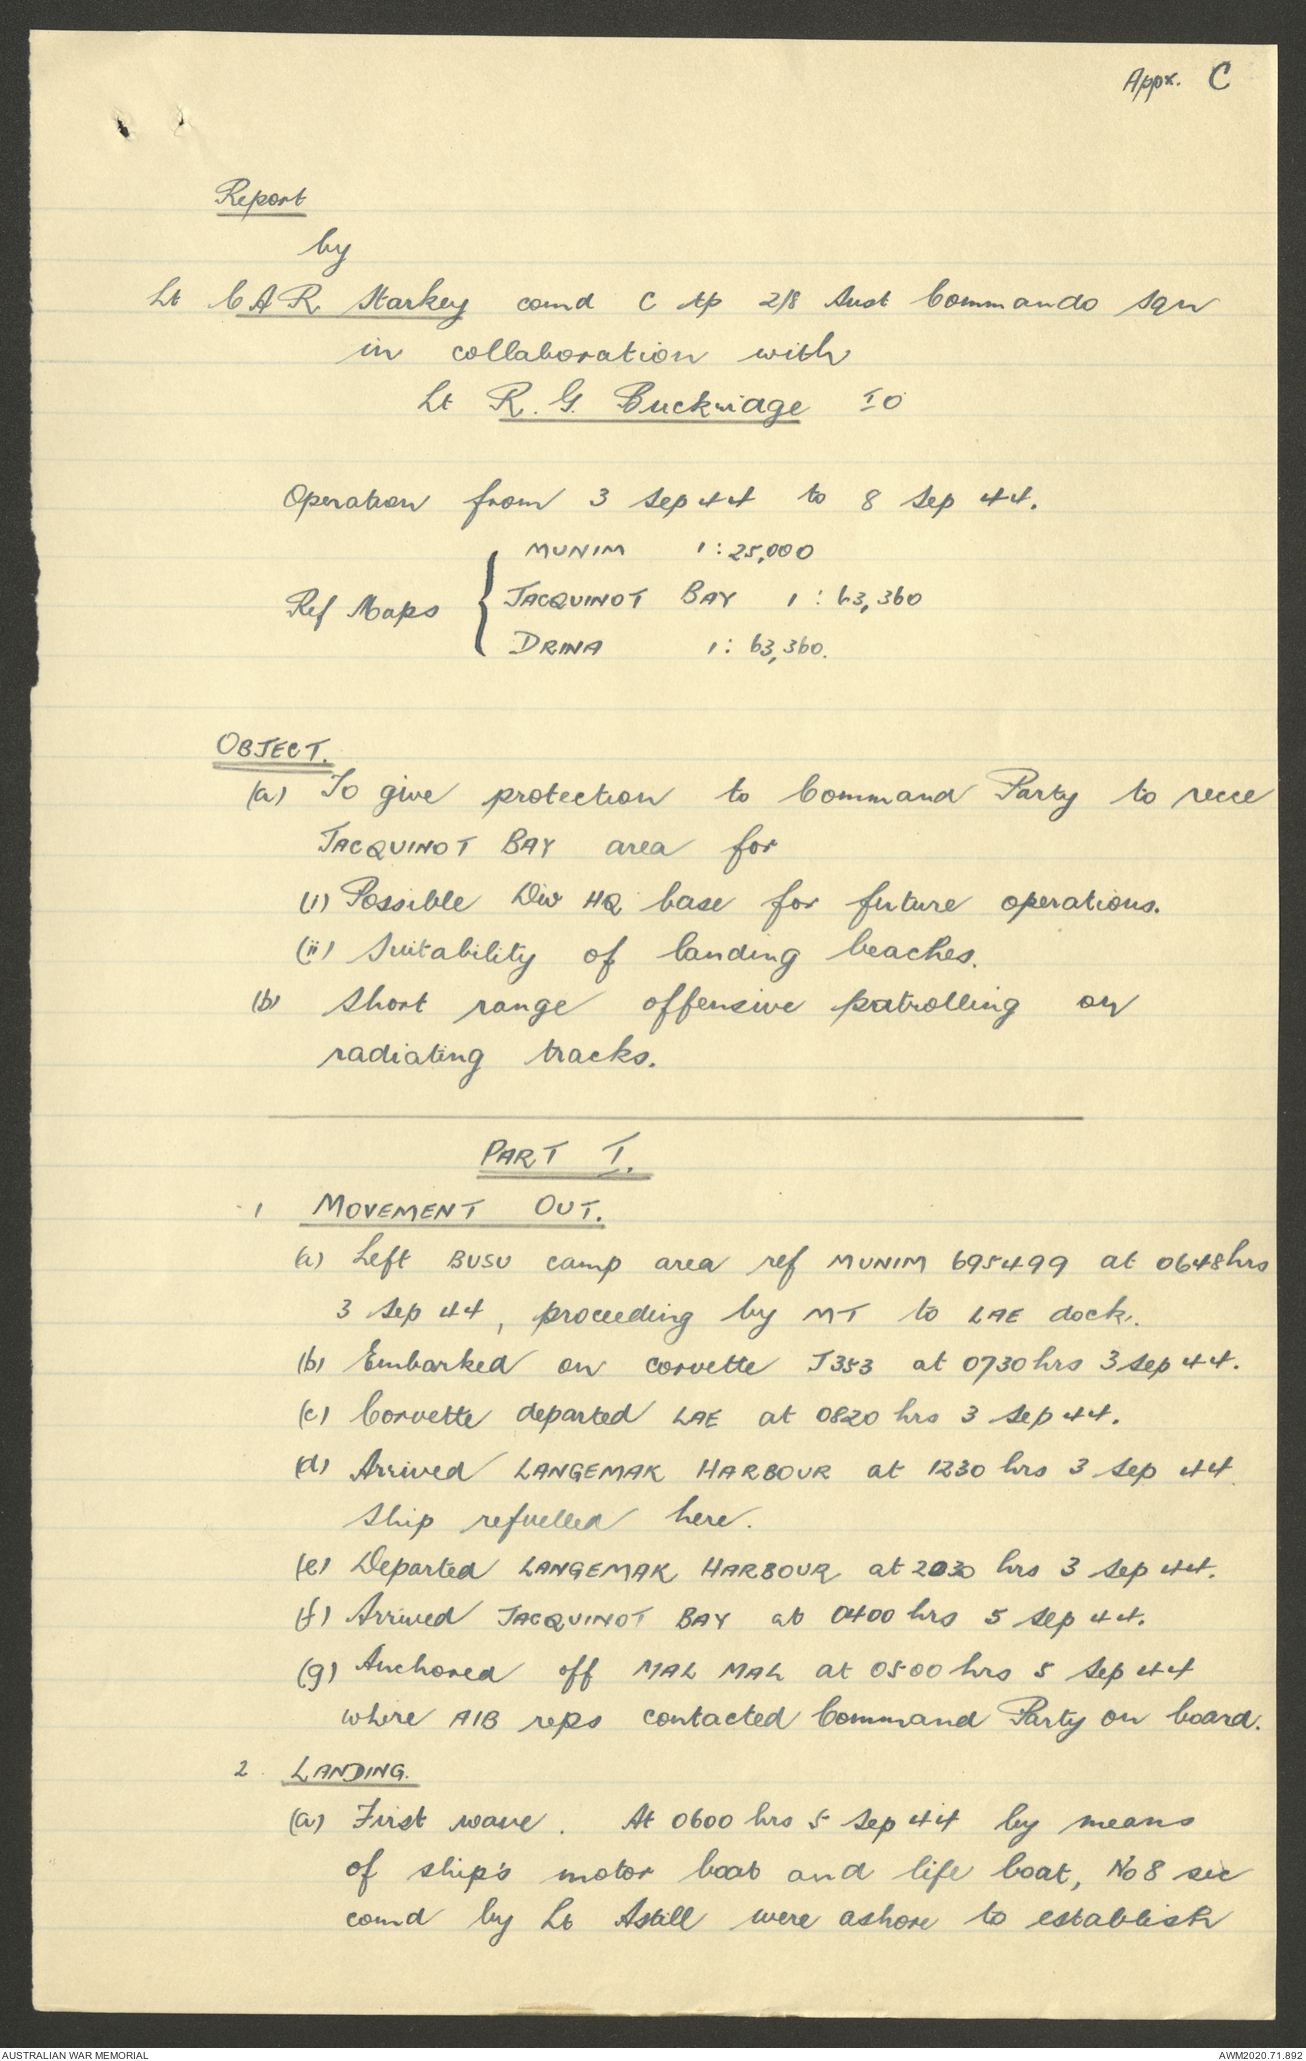 Appx. C
Report
by
Lt C A R Starkey comd C tp 2/8 Aust Commando Sqn
in collaboration with
Lt R. G. Buckridge IO
Operation from 3 Sep 44 to 8 Sep 44.
MUNIM 1:25,000
Ref Maps { JACQUINOT BAY 1:63,360
DRINA 1:63,360.
OBJECT.
(a) To give protection to Command Party to recce
JACQUINOT BAY area for
(i) Possible Div HQ base for future operations.
(ii) Suitability of landing beaches.
(b) Short range offensive patrolling on
radiating tracks.
PART I.
1 MOVEMENT OUT.
(a) Left BUSU camp area ref MUNIM 695499 at 0648hrs
3 Sep 44, proceeding by MT to LAE dock.
(b) Embarked on corvette J353 at 0730hrs 3 Sep 44.
(c) Corvette departed LAE at 0820 hrs 3 Sep 44.
(d) Arrived LANGEMAK HARBOUR at 1230 hrs 3 Sep 44
Ship refuelled here.
(e) Departed LANGEMAK HARBOUR at 2030 hrs 3 Sep 44.
(f) Arrived JACQUINOT BAY at 0400 hrs 5 Sep 44.
(g) Anchored off MAL MAL at 0500 hrs 5 Sep 44
where AIB reps contacted Command Party on board.
2. LANDING.
(a) First wave. At 0600 hrs 5 Sep 44 by means
of ship's motor boat and life boat, No 8 sec
comd by Lt Astill were ashore to establish
AUSTRALIAN WAR MEMORIAL
AWM2020.71.892